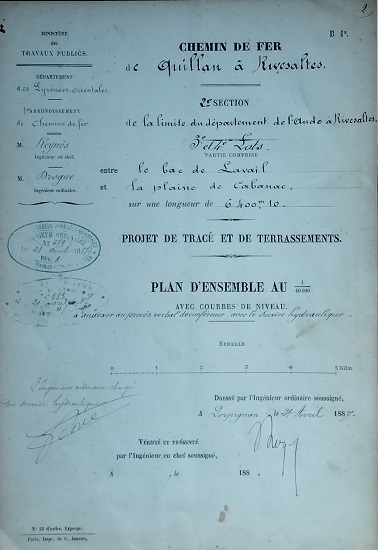 2
B 1º
MINISTÈRE
des
TRAVAUX PUBLICS.
DÉPARTEMENT
des Pyrénées-Orientales
ARRONDISSEMENT
de Chemin de fer
M. Reynès
Ingénieur en chef.
M.
Ingénieur ordinaire.
CHEMIN DE FER
de Quillan à Rivesaltes.
2e SECTION
de la limite du département de l'Aude à Rivesaltes.
3e et 4e Lots
PARTIE COMPRISE
entre le bac de Lavail
et la plaine de Cabanac
sur une longueur de 6400,m10
PROJET DE TRACÉ ET DE TERRASSEMENTS.
PLAN D'ENSEMBLE AU 1/40000
AVEC COURBES DE NIVEAU.
à annexer au procès-verbal de conférence avec le Service hydraulique.
ÉCHELLE
0 1 2 3 4 5 Kilm.
L'Ingénieur ordinaire chargé
du service hydraulique
DRESSÉ par l'Ingénieur ordinaire soussigné,
A Perpignan le 21 Avril 1887.
VÉRIFIÉ ET PRÉSENTÉ
par l'Ingénieur en chef soussigné,
A le 188
Paris. Impr.